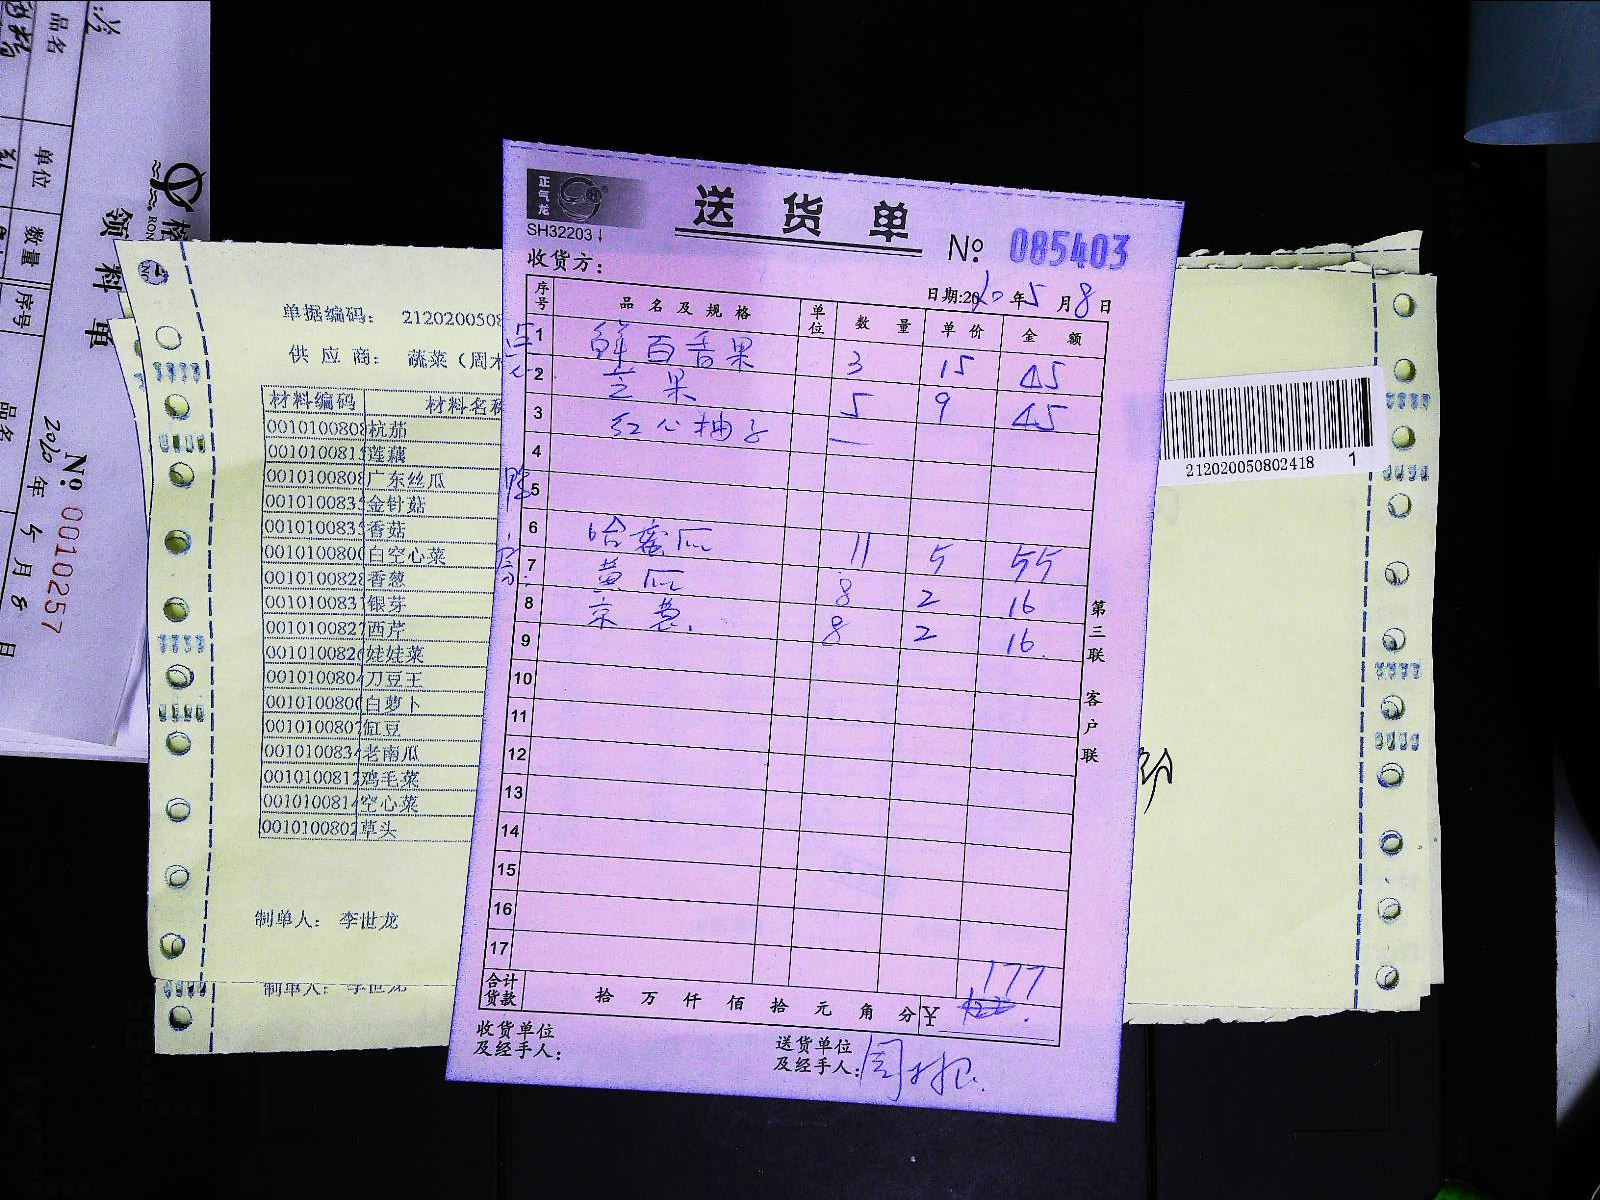 品名
单位
数量
序号
领料单
品名
No 0010257
2020年5月8日
单据编码： 21202005080
供应商： 蔬菜（周木
材料编码 材料名称
0010100808 杭茄
001010081 莲藕
0010100808 广东丝瓜
001010083 金针菇
001010083 香菇
001010080 白空心菜
0010100828 香葱
001010083 银芽
001010082 西芹
001010082 娃娃菜
001010080 刀豆王
001010080 白萝卜
001010080 缸豆
001010083 老南瓜
001010081 鸡毛菜
001010081 空心菜
001010080 草头
制单人： 李世龙
制单人： 李世龙
正气龙
SH32203
送货单
No 085403
收货方：
日期:2020年5月8日
序号 品名及规格 单位 数量 单价 金额
1 鲜百香果 3 15 45
2 芒果 5 9 45
3 红心柚子 —
4
5
6 哈蜜瓜 11 5 55
7 黄瓜 8 2 16
8 京葱 8 2 16
9
10
11
12
13
14
15
16
17
177
合计货款 拾万仟佰拾元角分 ¥
收货单位及经手人：
送货单位及经手人：周
第三联 客户联
212020050802418 1